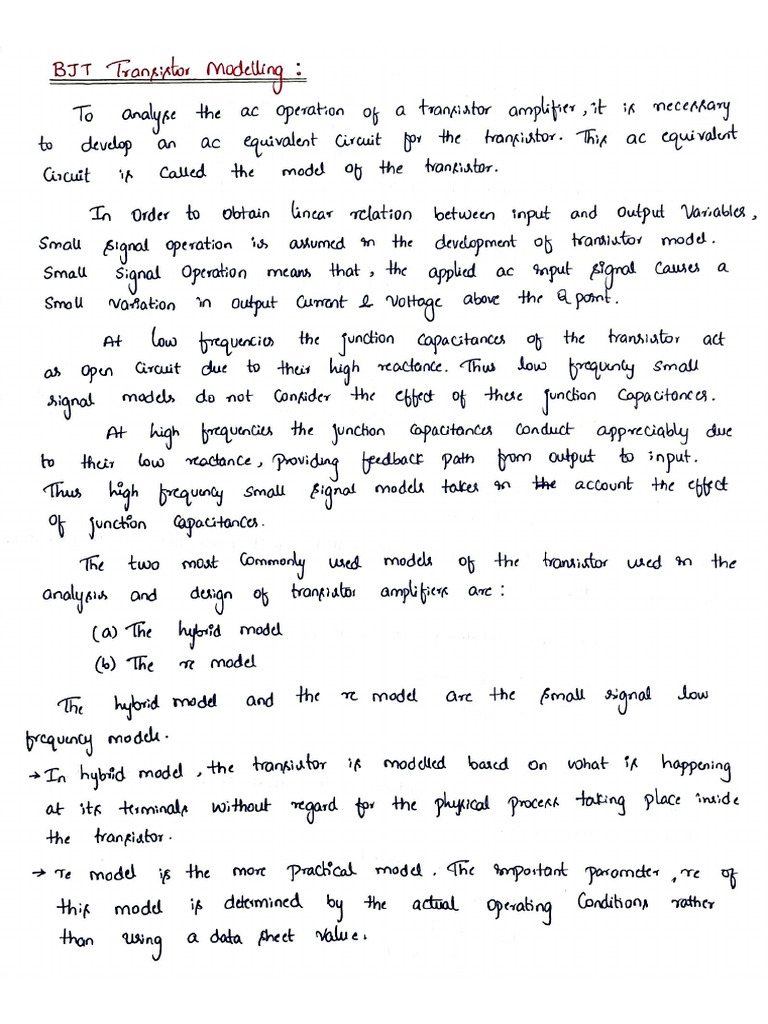 BJT Transistor Modelling :
To analyse the ac operation of a transistor amplifier, it is necessary
to develop an ac equivalent circuit for the transistor. This ac equivalent
circuit is called the model of the transistor.
In order to obtain linear relation between input and output variables,
small signal operation is assumed in the development of transistor model.
Small signal operation means that, the applied ac input signal causes a
small variation in output current & voltage above the Q point.
At low frequencies the junction capacitances of the transistor act
as open circuit due to their high reactance. Thus low frequency small
signal models do not consider the effect of these junction capacitances.
At high frequencies the junction capacitances conduct appreciably due
to their low reactance, providing feedback path from output to input.
Thus high frequency small signal models takes in the account the effect
of junction capacitances.
The two most commonly used models of the transistor used in the
analysis and design of transistor amplifiers are :
(a) The hybrid model
(b) The re model
The hybrid model and the re model are the small signal low
frequency models.
→ In hybrid model, the transistor is modelled based on what is happening
at its terminals without regard for the physical process taking place inside
the transistor.
→ re model is the more practical model. The important parameter, re of
this model is determined by the actual operating conditions rather
than using a data sheet value.